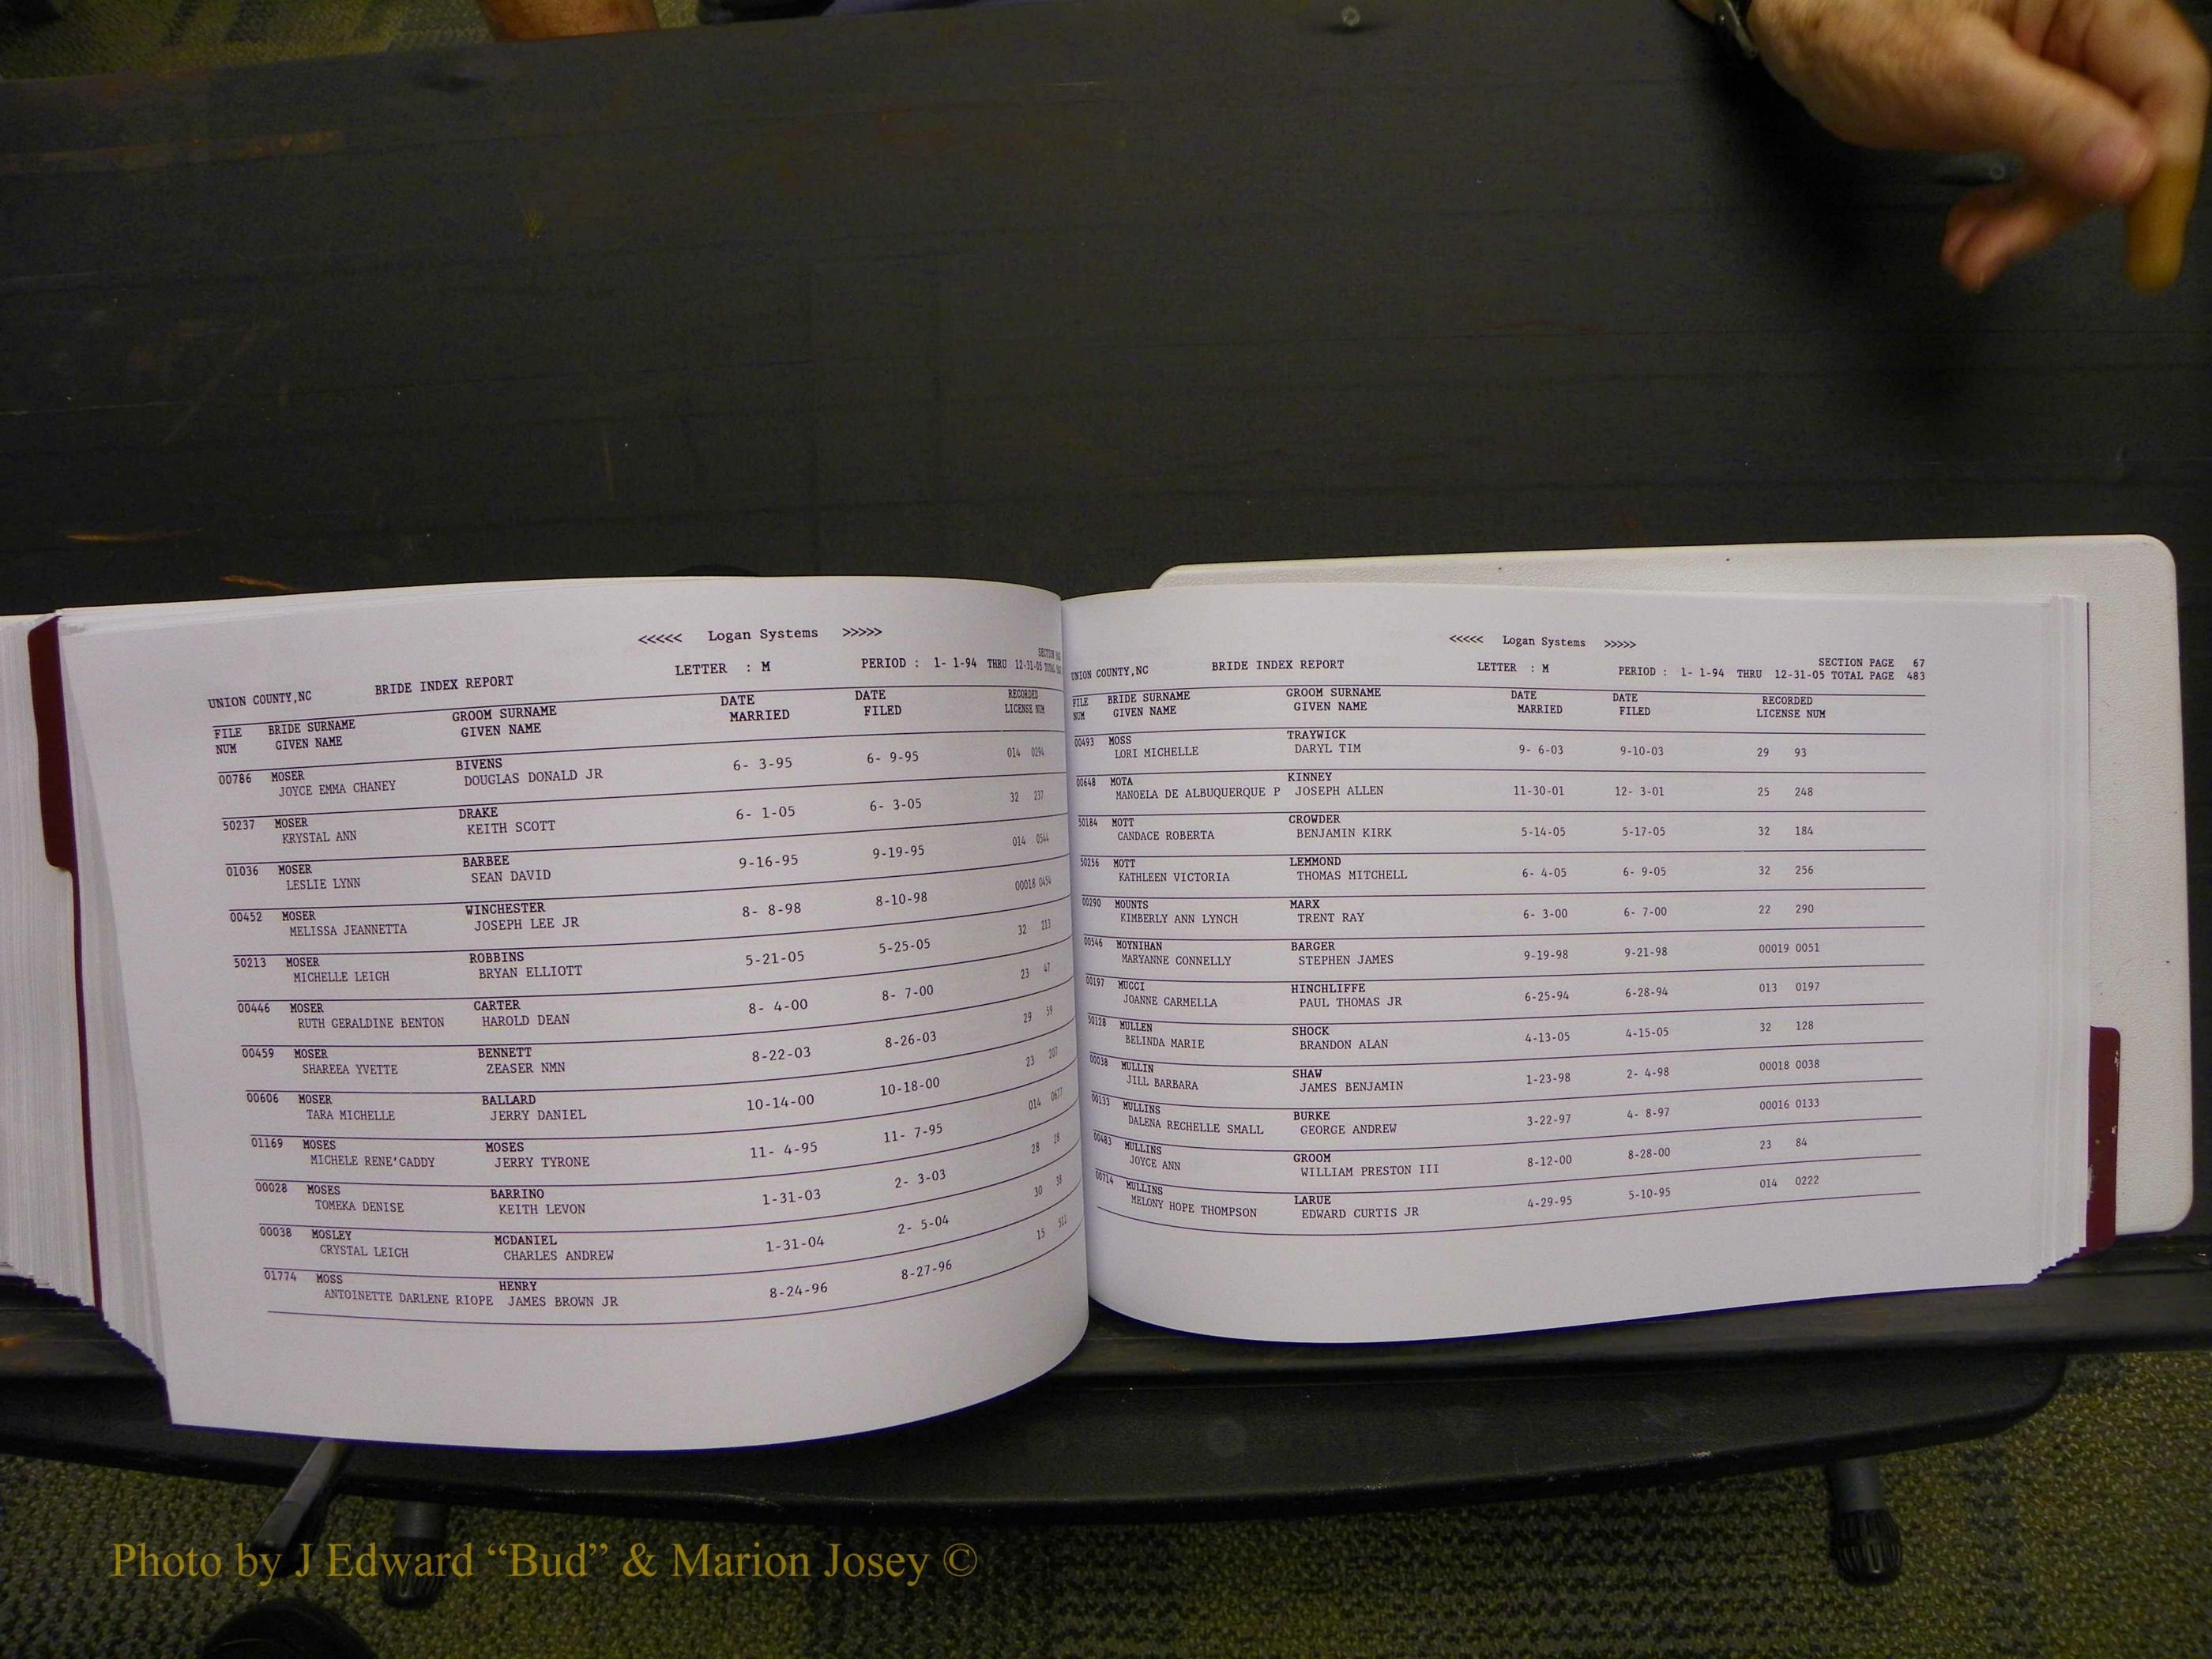 <<<<< Logan Systems >>>>>
UNION COUNTY,NC BRIDE INDEX REPORT LETTER : M PERIOD : 1- 1-94 THRU 12-31-05 TOTAL
SECTION
FILE BRIDE SURNAME GROOM SURNAME DATE DATE RECORDED
NUM GIVEN NAME GIVEN NAME MARRIED FILED LICENSE NUM
00786 MOSER BIVENS 6- 3-95 6- 9-95 014 0294
JOYCE EMMA CHANEY DOUGLAS DONALD JR
50237 MOSER DRAKE 6- 1-05 6- 3-05 32 237
KRYSTAL ANN KEITH SCOTT
01036 MOSER BARBEE 9-16-95 9-19-95 014 0544
LESLIE LYNN SEAN DAVID
00452 MOSER WINCHESTER 8- 8-98 8-10-98 00018 0454
MELISSA JEANNETTA JOSEPH LEE JR
50213 MOSER ROBBINS 5-21-05 5-25-05 32 213
MICHELLE LEIGH BRYAN ELLIOTT
00446 MOSER CARTER 8- 4-00 8- 7-00 23 47
RUTH GERALDINE BENTON HAROLD DEAN
00459 MOSER BENNETT 8-22-03 8-26-03 29 59
SHAREEA YVETTE ZEASER NMN
00606 MOSER BALLARD 10-14-00 10-18-00 23 207
TARA MICHELLE JERRY DANIEL
01169 MOSES MOSES 11- 4-95 11- 7-95 014 0677
MICHELE RENE'GADDY JERRY TYRONE
00028 MOSES BARRINO 1-31-03 2- 3-03 28 28
TOMEKA DENISE KEITH LEVON
00038 MOSLEY MCDANIEL 1-31-04 2- 5-04 30 38
CRYSTAL LEIGH CHARLES ANDREW
01774 MOSS HENRY 8-24-96 8-27-96 15
ANTOINETTE DARLENE RIOPE JAMES BROWN JR
<<<<< Logan Systems >>>>>
SECTION PAGE 67
UNION COUNTY,NC BRIDE INDEX REPORT LETTER : M PERIOD : 1- 1-94 THRU 12-31-05 TOTAL PAGE 483
FILE BRIDE SURNAME GROOM SURNAME DATE DATE RECORDED
NUM GIVEN NAME GIVEN NAME MARRIED FILED LICENSE NUM
00493 MOSS TRAYWICK 9- 6-03 9-10-03 29 93
LORI MICHELLE DARYL TIM
00648 MOTA KINNEY 11-30-01 12- 3-01 25 248
MANOELA DE ALBUQUERQUE P JOSEPH ALLEN
50184 MOTT CROWDER 5-14-05 5-17-05 32 184
CANDACE ROBERTA BENJAMIN KIRK
50256 MOTT LEMMOND 6- 4-05 6- 9-05 32 256
KATHLEEN VICTORIA THOMAS MITCHELL
00290 MOUNTS MARX 6- 3-00 6- 7-00 22 290
KIMBERLY ANN LYNCH TRENT RAY
00546 MOYNIHAN BARGER 9-19-98 9-21-98 00019 0051
MARYANNE CONNELLY STEPHEN JAMES
00197 MUCCI HINCHLIFFE 6-25-94 6-28-94 013 0197
JOANNE CARMELLA PAUL THOMAS JR
50128 MULLEN SHOCK 4-13-05 4-15-05 32 128
BELINDA MARIE BRANDON ALAN
00038 MULLIN SHAW 1-23-98 2- 4-98 00018 0038
JILL BARBARA JAMES BENJAMIN
00133 MULLINS BURKE 3-22-97 4- 8-97 00016 0133
DALENA RECHELLE SMALL GEORGE ANDREW
00483 MULLINS GROOM 8-12-00 8-28-00 23 84
JOYCE ANN WILLIAM PRESTON III
00714 MULLINS LARUE 4-29-95 5-10-95 014 0222
MELONY HOPE THOMPSON EDWARD CURTIS JR
Photo by J Edward “Bud” & Marion Josey ©